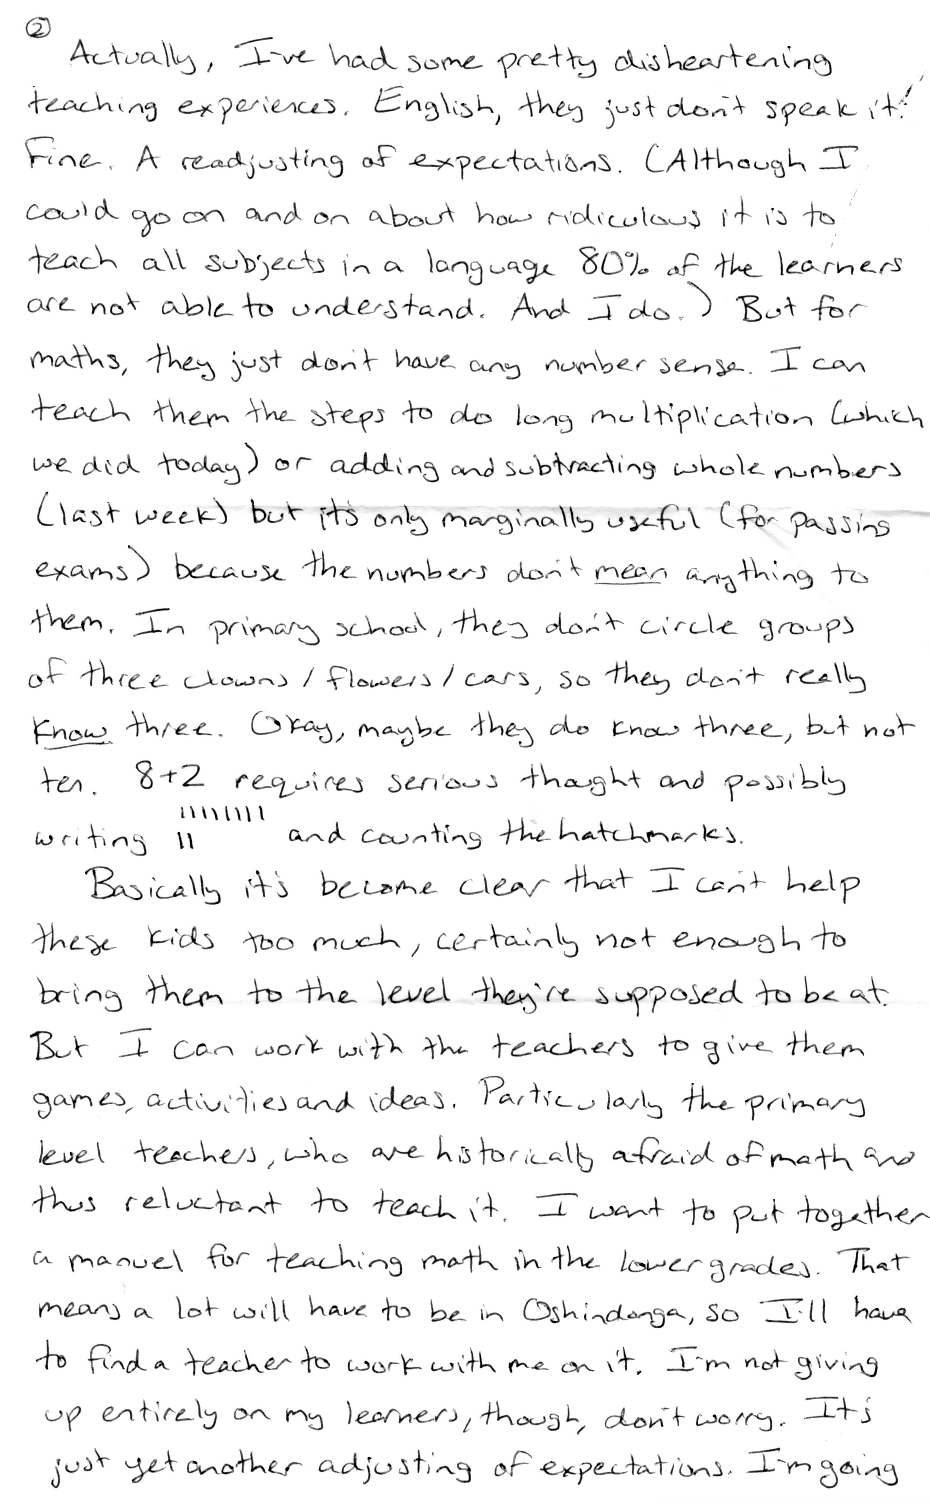 ②
Actually, I've had some pretty disheartening
teaching experiences. English, they just don't speak it!
Fine. A readjusting of expectations. (Although I
could go on and on about how ridiculous it is to
teach all subjects in a language 80% of the learners
are not able to understand. And I do.) But for
maths, they just don't have any number sense. I can
teach them the steps to do long multiplication (which
we did today) or adding and subtracting whole numbers
(last week) but it's only marginally useful (for passing
exams) because the numbers don't mean anything to
them. In primary school, they don't circle groups
of three clowns/flowers/cars, so they don't really
know three. Okay, maybe they do know three, but not
ten. 8+2 requires serious thought and possibly
IIIIIIII
writing II and counting the hatchmarks.
Basically it's become clear that I can't help
these kids too much, certainly not enough to
bring them to the level they're supposed to be at.
But I can work with the teachers to give them
games, activities and ideas. Particularly the primary
level teachers, who are historically afraid of math and
thus reluctant to teach it. I want to put together
a manuel for teaching math in the lower grades. That
means a lot will have to be in Oshindonga, so I'll have
to find a teacher to work with me on it. I'm not giving
up entirely on my learners, though, don't worry. It's
just yet another adjusting of expectations. I'm going